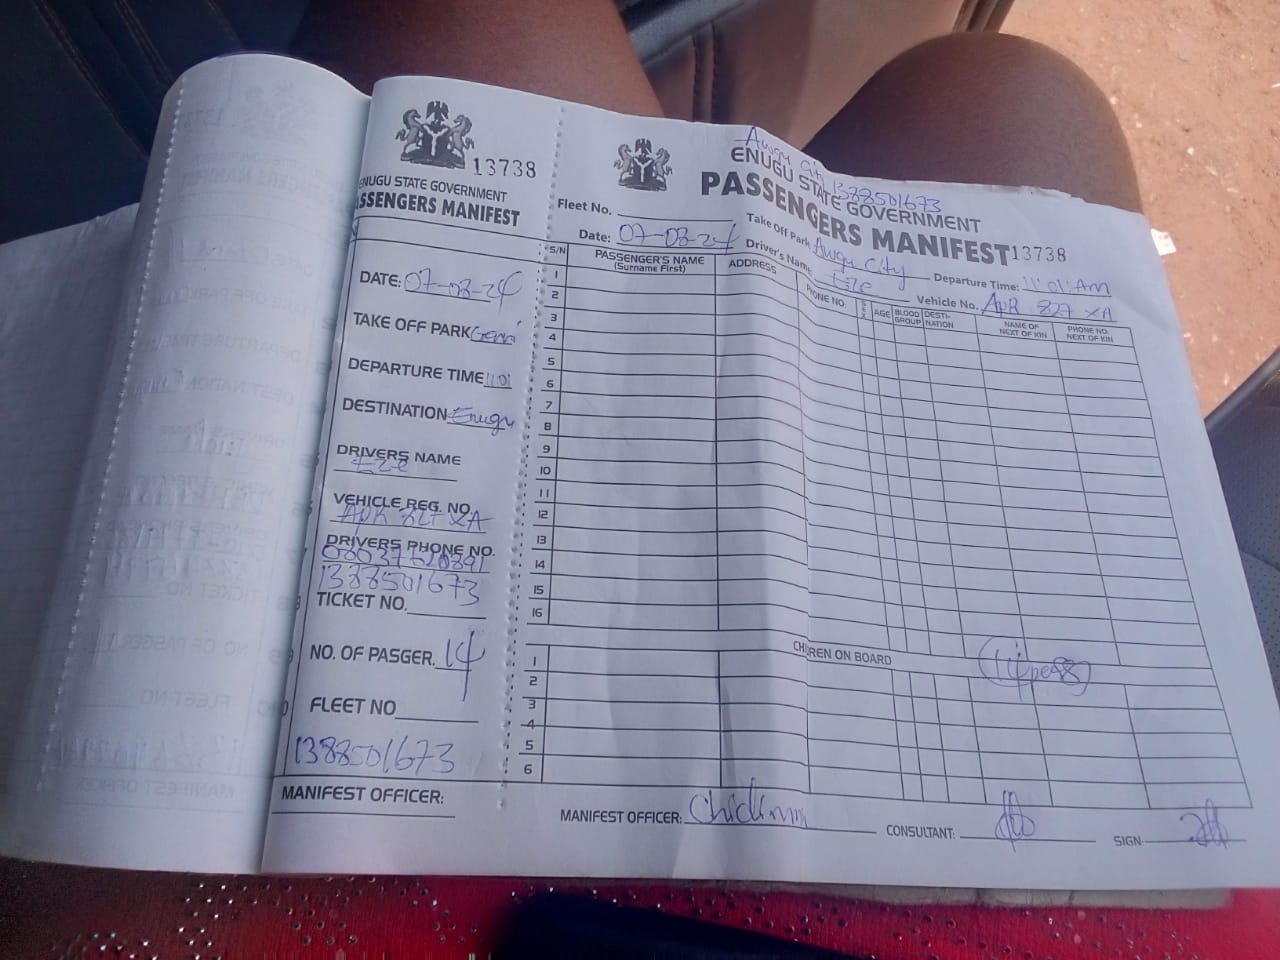 13738
ENUGU STATE GOVERNMENT
PASSENGERS MANIFEST
DATE: 07-08-24
TAKE OFF PARK
DEPARTURE TIME 11:01
DESTINATION Enugu
DRIVERS NAME
Eze
VEHICLE REG. NO.
APR 827 XA
DRIVERS PHONE NO.
1388501673
TICKET NO.
NO. OF PASGER. 14
FLEET NO
1388501673
MANIFEST OFFICER:
Awgu City 1388501673
ENUGU STATE GOVERNMENT
PASSENGERS MANIFEST 13738
Fleet No. Take Off Park Awgu City Departure Time: 11:01:Am
Date: 07-08-24 Driver's Name Eze Vehicle No. APR 827 XA
S/N PASSENGER'S NAME (Surname First) ADDRESS PHONE NO. SEX AGE BLOOD GROUP DESTI-NATION NAME OF NEXT OF KIN PHONE NO. NEXT OF KIN
1
2
3
4
5
6
7
8
9
10
11
12
13
14
15
16
CHILDREN ON BOARD
1
2
3
4
5
6
MANIFEST OFFICER: CONSULTANT: SIGN